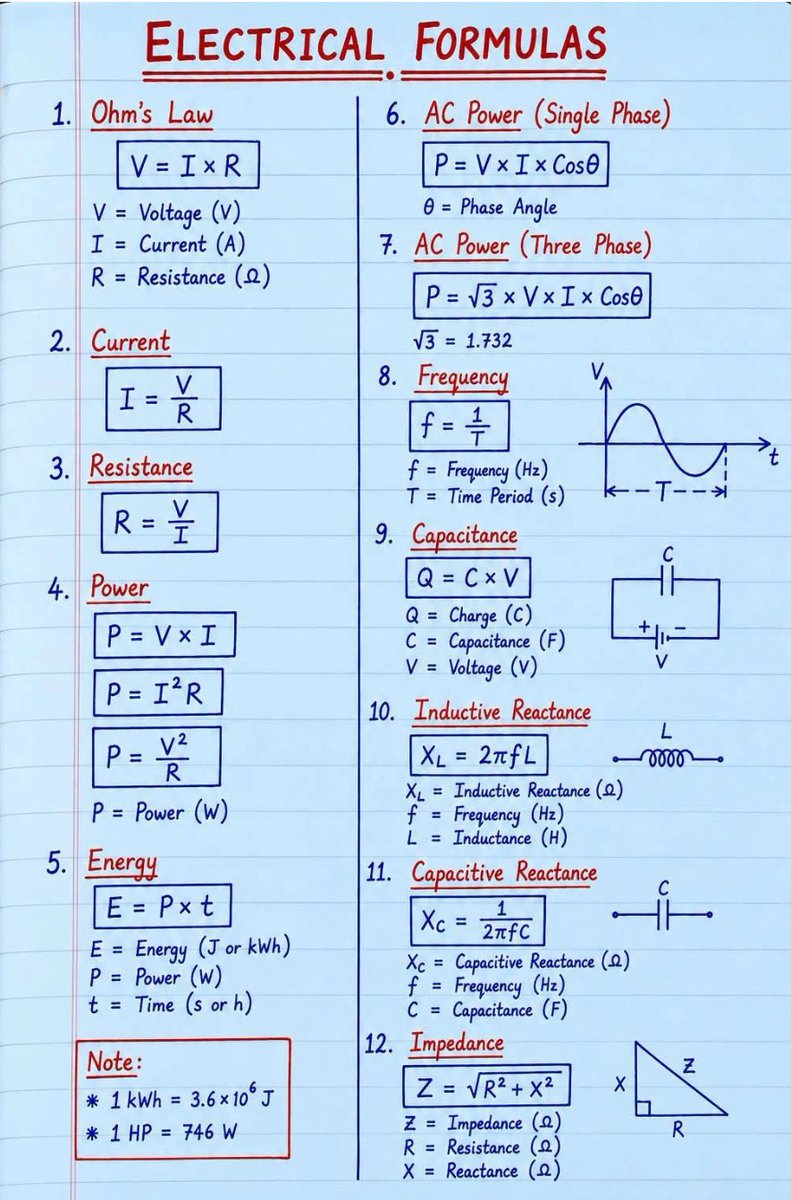 ELECTRICAL FORMULAS
1. Ohm's Law
V = I × R
V = Voltage (V)
I = Current (A)
R = Resistance (Ω)
2. Current
I = V/R
3. Resistance
R = V/I
4. Power
P = V × I
P = I²R
P = V²/R
P = Power (W)
5. Energy
E = P × t
E = Energy (J or kWh)
P = Power (W)
t = Time (s or h)
Note:
* 1 kWh = 3.6×10⁶ J
* 1 HP = 746 W
6. AC Power (Single Phase)
P = V × I × Cosθ
θ = Phase Angle
7. AC Power (Three Phase)
P = √3 × V × I × Cosθ
√3 = 1.732
8. Frequency
f = 1/T
f = Frequency (Hz)
T = Time Period (s)
V
t
T
9. Capacitance
Q = C × V
Q = Charge (C)
C = Capacitance (F)
V = Voltage (V)
C
+ −
V
10. Inductive Reactance
X_L = 2πfL
X_L = Inductive Reactance (Ω)
f = Frequency (Hz)
L = Inductance (H)
L
11. Capacitive Reactance
X_C = 1/2πfC
X_C = Capacitive Reactance (Ω)
f = Frequency (Hz)
C = Capacitance (F)
C
12. Impedance
Z = √R² + X²
Z = Impedance (Ω)
R = Resistance (Ω)
X = Reactance (Ω)
X
Z
R